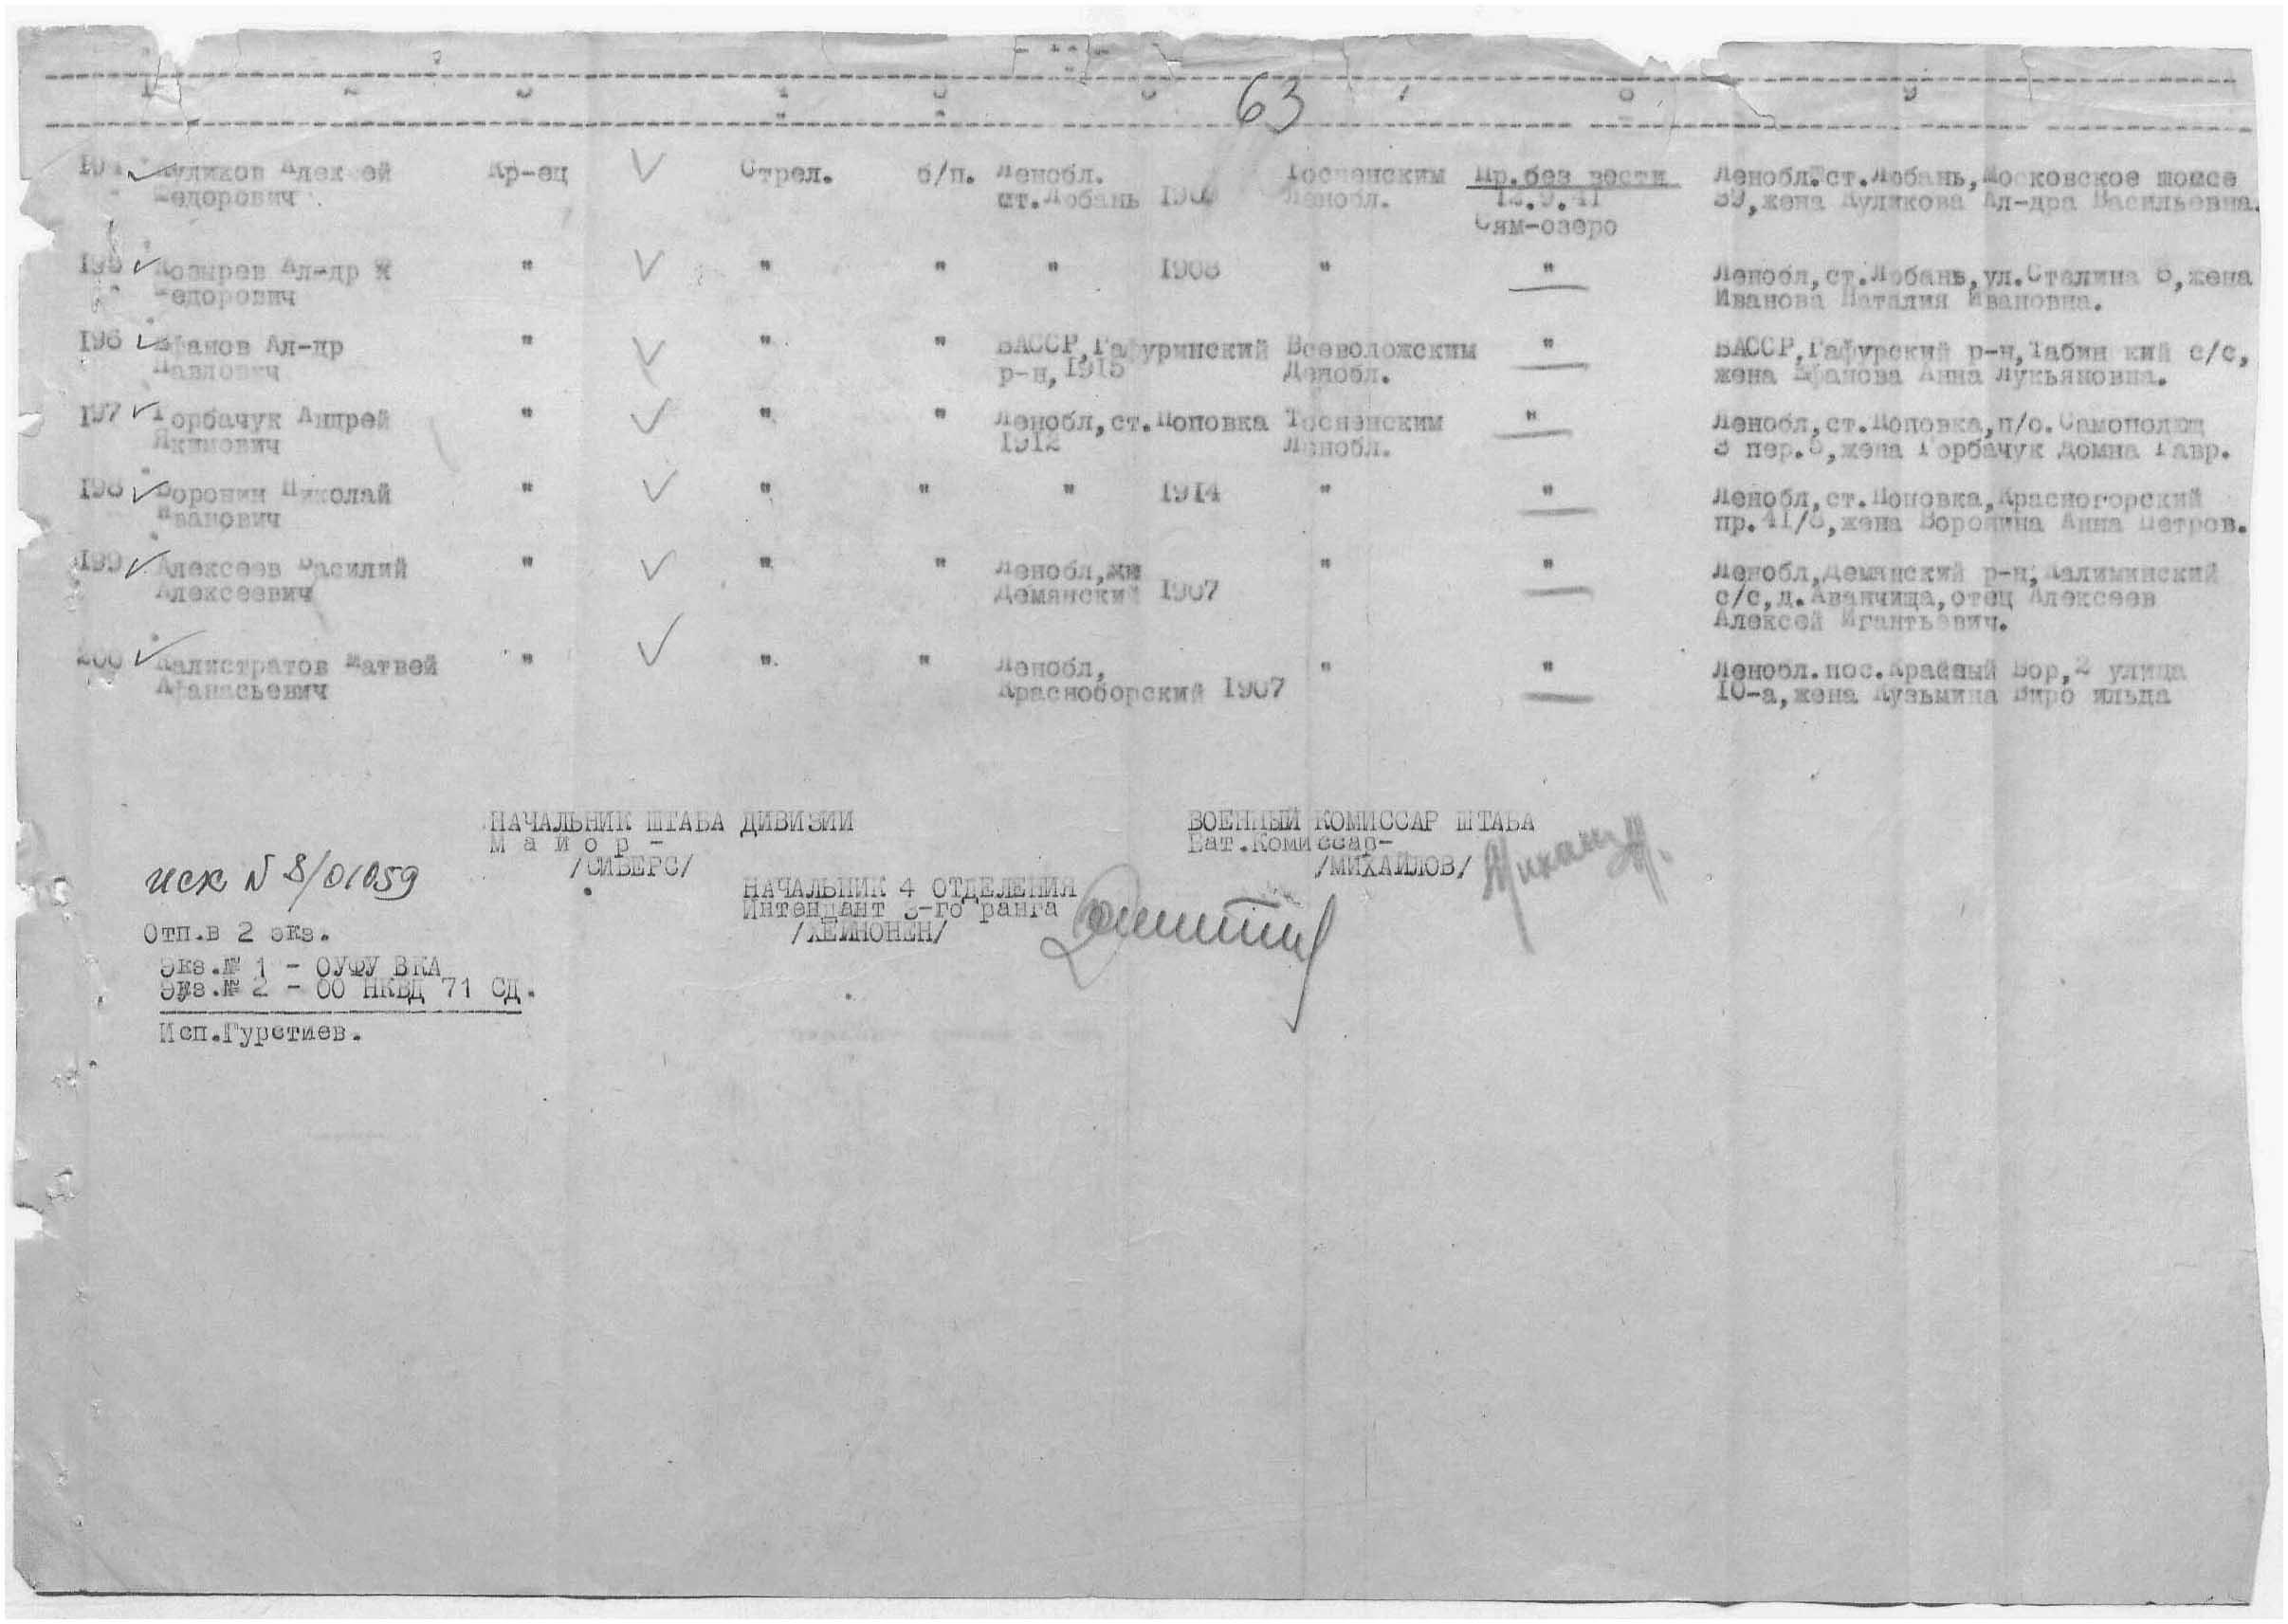 63
194 Куликов Алексей Кр-ец Стрел. б/п. Ленобл. Тосненским Пр.без вести Ленобл.ст.Любань,Московское шоссе
Федорович ст.Любань Ленобл. 12.9.41 39,жена Куликова Ал-дра Васильевна.
Сям-озеро
195 Козырев Ал-др " " " " 1908 " " Ленобл,ст.Любань,ул.Сталина 6,жена
Федорович Иванова Наталия Ивановна.
196 Ефанов Ал-др " " " БАССР,Гафуринский Всеволожским " БАССР,Гафурский р-н,Табин кий с/с,
Павлович р-н,1915 Ленобл. жена Ефанова Анна Лукьяновна.
197 Горбачук Андрей " " " Ленобл,ст.Поповка Тосненским " Ленобл,ст.Поповка,п/о.Самополющ
Якимович 1912 Ленобл. 3 пер.5,жена Горбачук Домна Гавр.
198 Воронин Николай " " " " 1914 " " Ленобл,ст.Поповка,Красногорский
Иванович пр.41/8,жена Воронина Анна Петров.
199 Алексеев Василий " " " Ленобл, " " Ленобл,Демянский р-н,
Алексеевич Демянский 1907 с/с,д.Аванчища,отец Алексеев
Алексей Игантьевич.
200 Калистратов Матвей " " " Ленобл, " " Ленобл.пос.Красный Бор,2 улица
Афанасьевич Красноборский 1907 10-а,жена Кузьмина
НАЧАЛЬНИК ШТАБА ДИВИЗИИ ВОЕННЫЙ КОМИССАР ШТАБА
М а й о р - Бат.Комиссар-
/СИВЕРС/ /МИХАЙЛОВ/
исх № 8/01059
НАЧАЛЬНИК 4 ОТДЕЛЕНИЯ
Интендант 3-го ранга
/ХЕЙНОНЕН/
Отп.в 2 экз.
Экз.№ 1 - ОУФУ ВКА
Экз.№ 2 - ОО НКВД 71 СД.
Исп.Гурстиев.